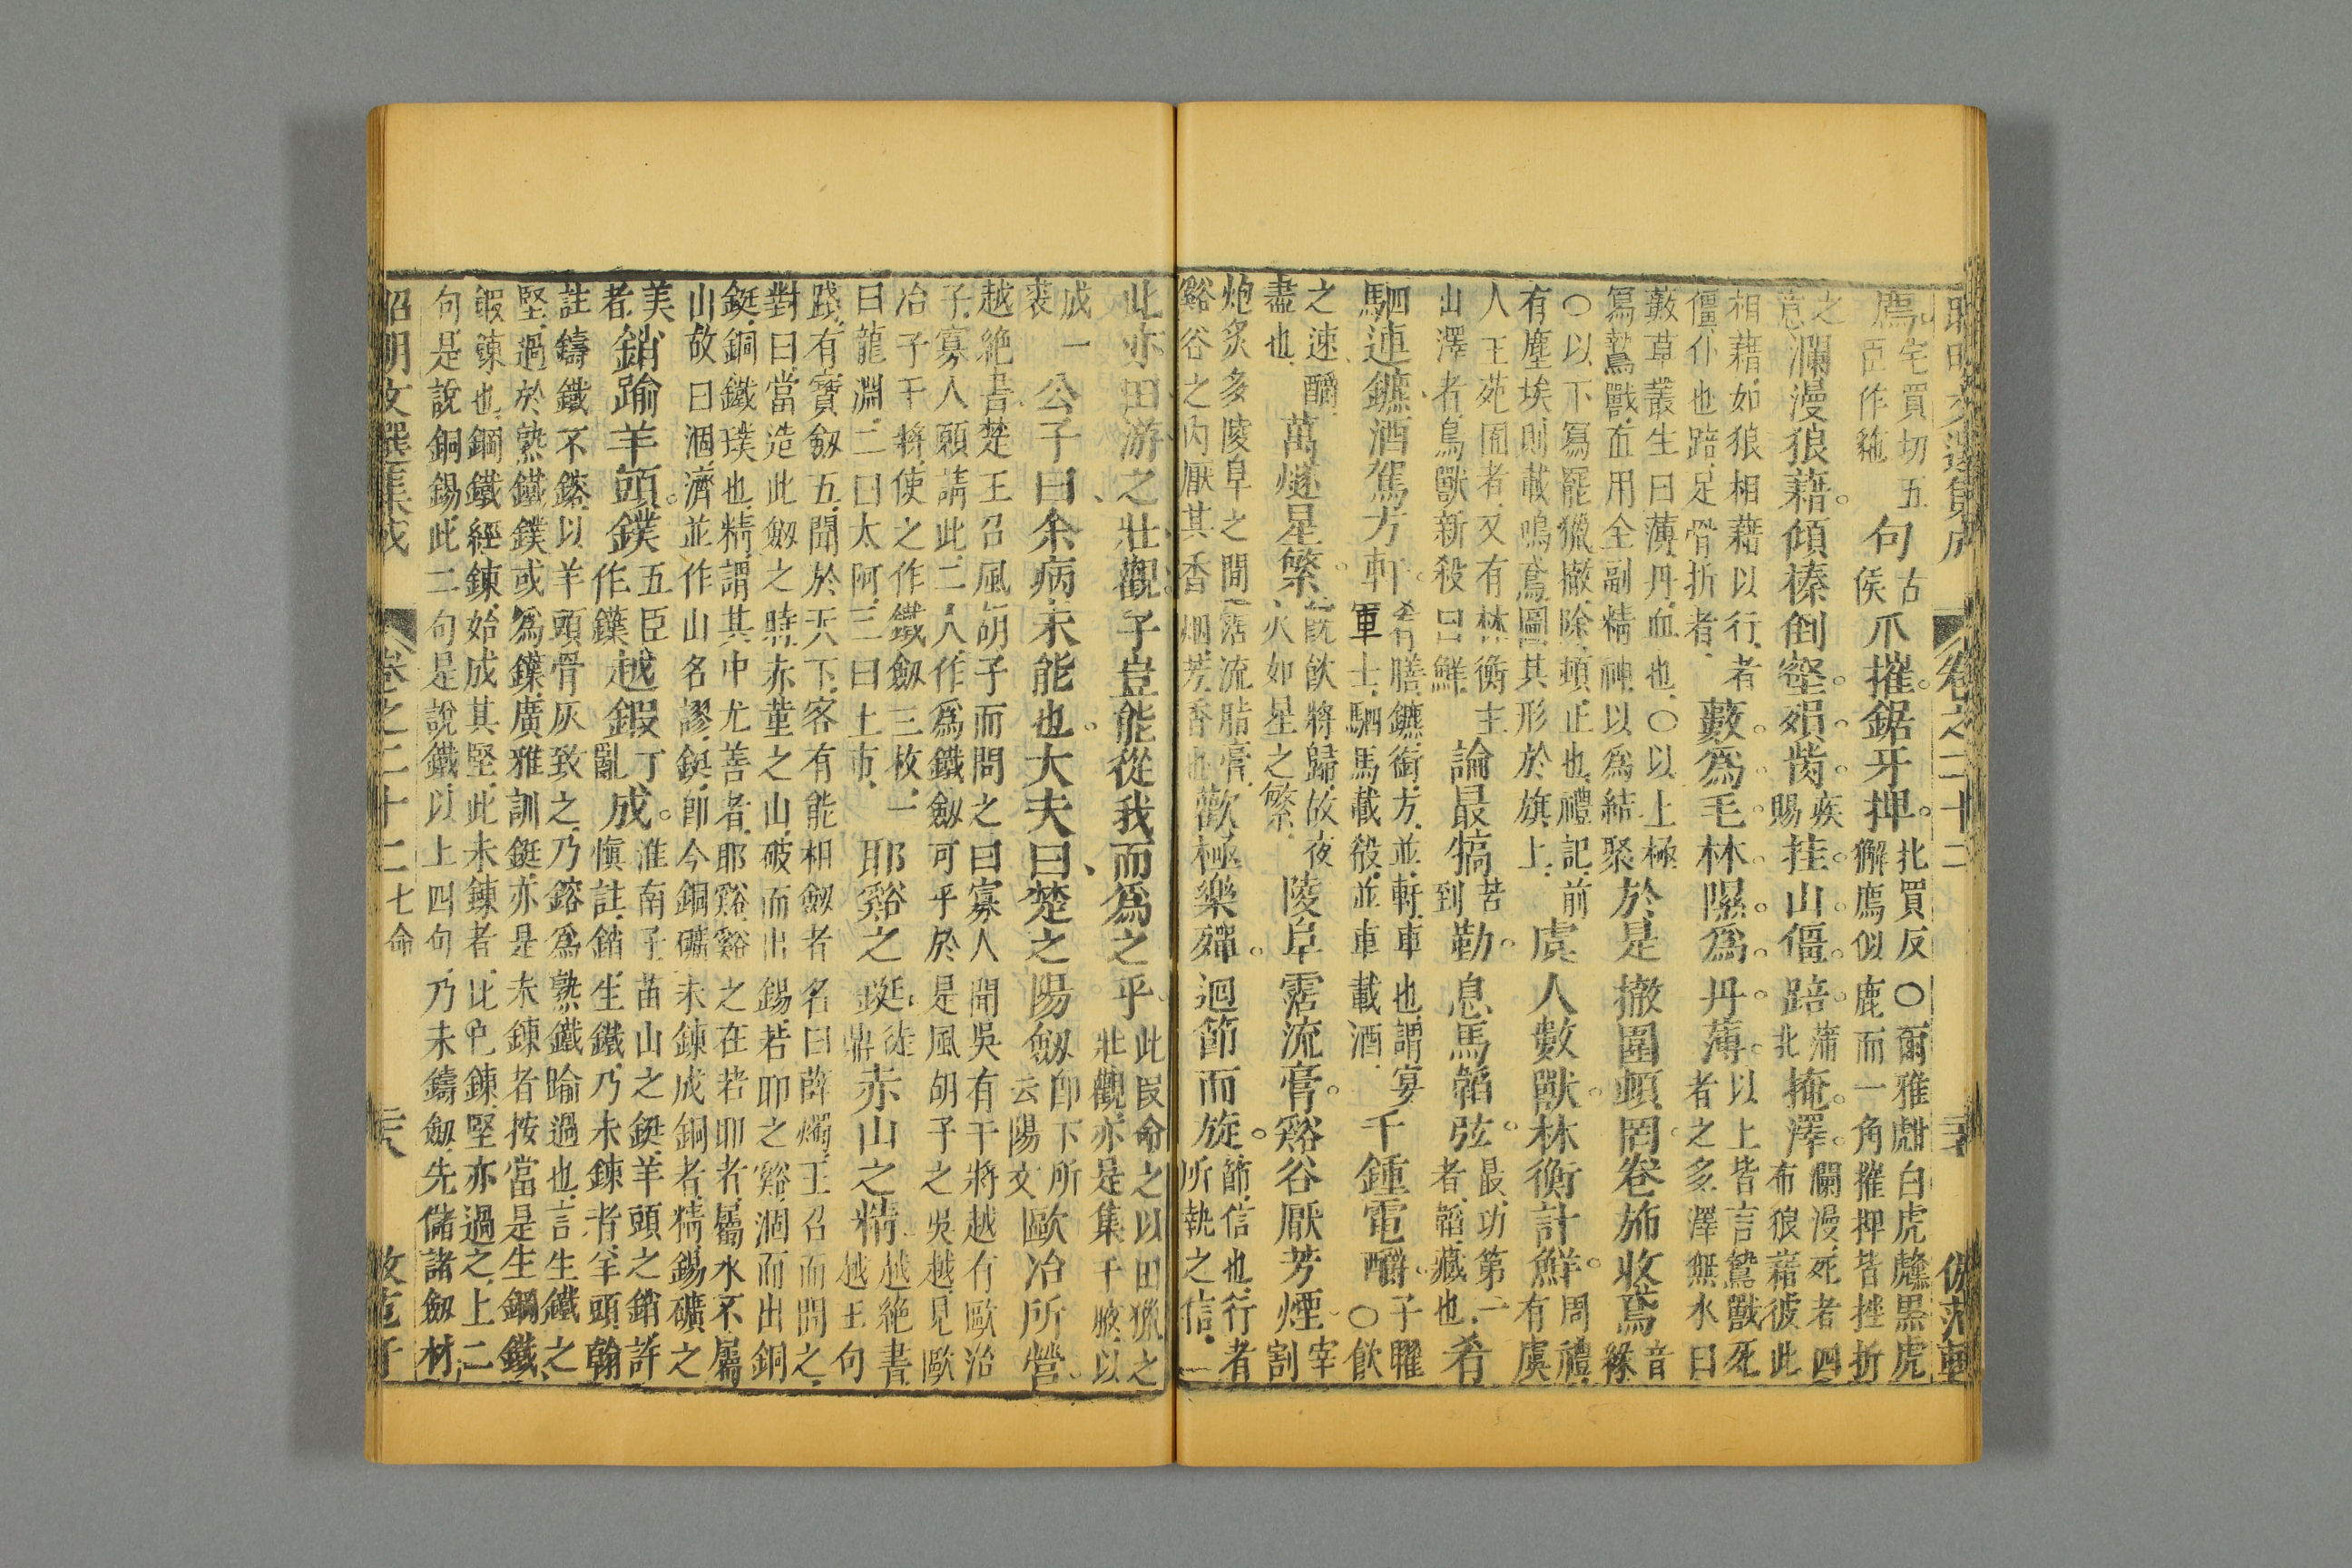 昭明文選集成 卷之二十二
宅買切五 句古
鷹臣作㺜 侯爪摧鋸牙捭北買反○爾雅甝白虎虪黑虎
獬鷹似鹿而一角摧捭皆挫折
之
意瀾漫狼藉傾榛倒壑殞胔疾賜挂山僵踣蒲北掩澤瀾漫死者四布狼藉彼此
相藉如狼相藉以行者
僵仆也踣足骨折者藪爲毛林隰爲丹薄以上皆言鷙獸死者之多澤無水曰
藪草叢生曰薄丹血也○以上極
寫鷙獸而用全副精神以爲結聚於是撤圍頓罔卷斾收鳶音緣
○以下寫罷獵撤除頓止也禮記前
有塵埃則載鳴鳶圖其形於旗上虞人數獸林衡計鮮周禮有虞
人王苑囿者又有林衡主
山澤者鳥獸新殺曰鮮論最犒苦到勤息馬韜弦最功第一者韜藏也肴
駟連鑣酒駕方軒肴膳鑣銜方並軒車也謂宴
軍士駟馬載殽並車載酒千鍾電釂子曜○飲
之速釂
盡也萬燧星繁既飲將歸故夜火如星之繁陵阜霑流膏谿谷厭芳煙宰割
炮炙多陵阜之間霑流脂膏
谿谷之内厭其香烟芳香也歡極樂殫迴節而旋節信也行者所執之信
此亦田游之壯觀子豈能從我而爲之乎此段命之以田獵之壯觀亦是集千腋以
成一
裘公子曰余病未能也大夫曰楚之陽劒卽下所云陽文歐冶所營
越絕書楚王召風胡子而問之曰寡人聞吳有干將越有歐冶
子寡人願請此二人作爲鐵劒可乎於是風胡子之吳越見歐
冶子干將使之作鐵劒三枚一
曰龍淵二曰太阿三曰土市耶谿之鋌徒鼎赤山之精越絕書越王句
踐有寶劒五聞於天下客有能相劒者名曰薛燭王召而問之
對曰當造此劒之時赤堇之山破而出錫若耶之谿涸而出銅
鋌銅鐵璞也精謂其中尤善者耶谿谿之在若耶者屬水不屬
山故曰涸濟並作山名謬鋌卽今銅礦未鍊成銅者精錫礦之
美
者銷踰羊頭鏷五臣作鏷越鍜丁亂成淮南子苗山之鋌羊頭之銷許
慎註銷生鐵乃未鍊者羊頭翰
註鑄鐵不鎔以羊頭骨灰致之乃鎔爲熟鐵踰過也言生鐵之
堅過於熟鐵鏷或爲鏷廣雅訓鋌亦是未鍊者按當是生鋼鐵
鍜涷也鋼鐵經鍊始成其堅此未鍊者比已鍊堅亦過之上二
句是說銅錫此二句是說鐵以上四句乃未鑄劒先儲諸劒材
昭明文選集成 卷之二十二 七命